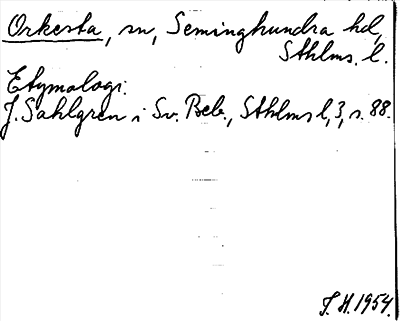 Orkesta, sn, Seminghundra hd,
Sthlms. l.
Etymologi:
J. Sahlgren i Sv. Beb., Sthlms l, 3, s. 88.
J. H. 1954.